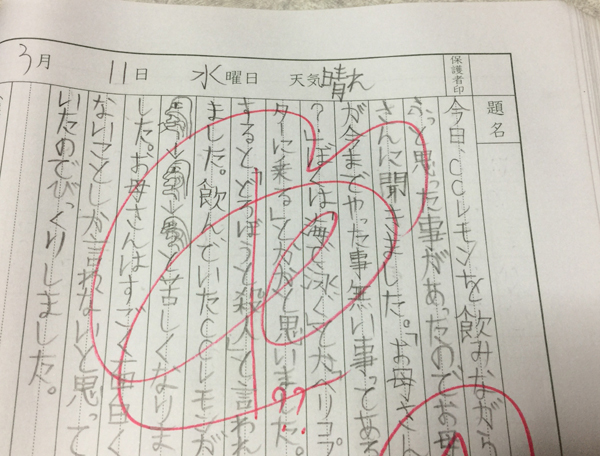 3月 11日 水曜日 天気 晴れ 保護者印
題名
今日、CCレモンを飲みながら
ふっと思った事があったのでお母
さんに聞きました。「お母さん
が今までやった事無い事ってある
?」ぼくは「海で泳ぐ」とか「ヘリコプ
ターに乗る」とかかと思いました。
すると「どろぼうと殺人」と言われ
ました。飲んでいたCCレモンが
と苦しくなりま
した。お母さんはすごく面白く
ないことしか言れないと思って
いたのでびっくりしました。
??